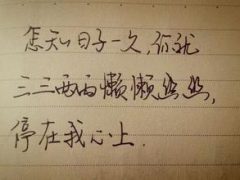 怎知日子一久,你就
三三两两懒懒幽幽,
停在我心上.